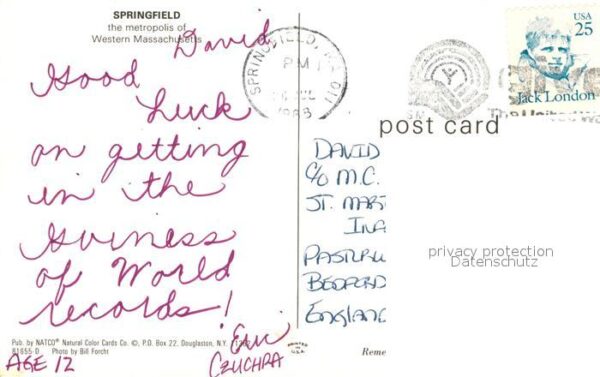 SPRINGFIELD
the metropolis of
Western Massachusetts
David,
Good
Luck
on getting
in the
Guiness
of World
records!
Eric
CZUCHRA
AGE 12
Pub. by NATCO® Natural Color Cards Co. ©, P.O. Box 22, Douglaston, N.Y. 11362
81655-D Photo by Bill Forchr
PRINTED IN U.S.A.
SPRINGFIELD, MA 011
PM
1988
USA
25
Jack London
post card
DAVID
C/O M.C.
ST. MARS
INA
PASTURE
BEDFORD
ENGLAND
privacy protection
Datenschutz
Reme